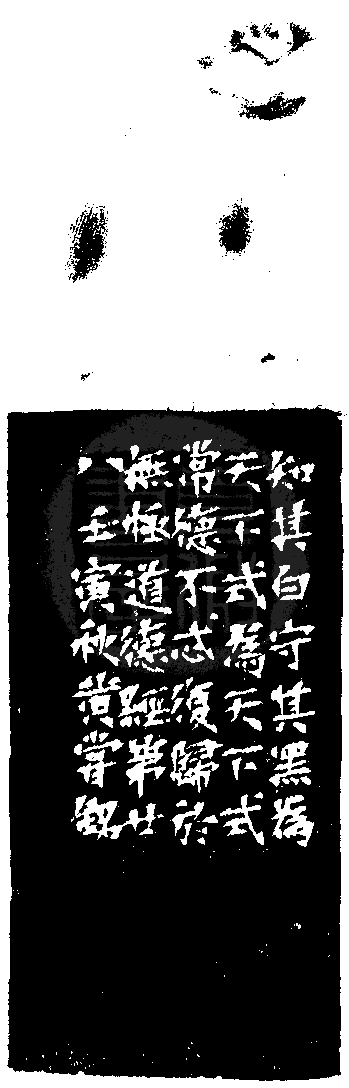 知其白守其黑為
天下式為天下式
常德不忒復歸於
無極道德經第廿
八壬寅秋黄嘗銘